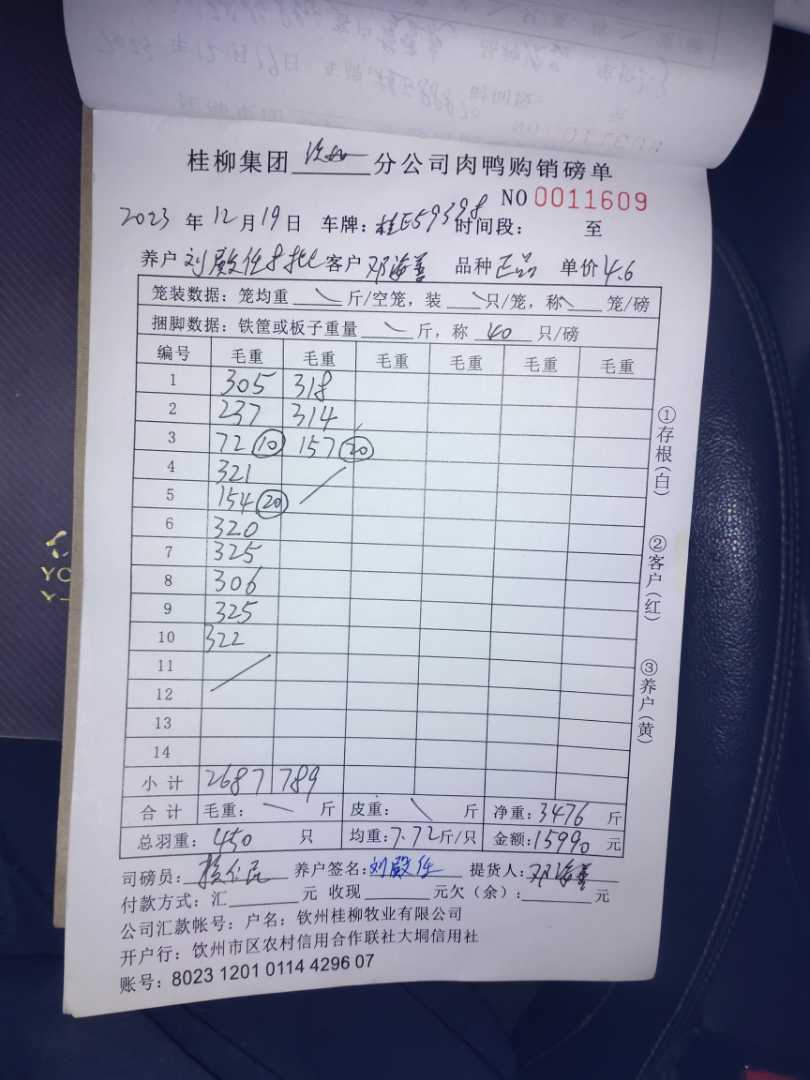 桂柳集团 钦州 分公司肉鸭购销磅单
NO 0011609
2023 年 12 月 19 日 车牌: 桂E59398 时间段: 至
养户 刘殿任8批 客户 邓海善 品种 正品 单价 4.6
笼装数据: 笼均重 斤/空笼, 装 只/笼, 称 笼/磅
捆脚数据: 铁筐或板子重量 斤, 称 40 只/磅
编号 毛重 毛重 毛重 毛重 毛重 毛重
1 305 318
2 237 314
3 72 ⑩ 157 ⑳
4 321
5 154 ⑳
6 320
7 325
8 306
9 325
10 322
11
12
13
14
小计 2687 789
合计 毛重: 斤 皮重: 斤 净重: 3476 斤
总羽重: 450 只 均重: 7.72 斤/只 金额: 15990 元
司磅员: 养户签名: 刘殿任 提货人: 邓海善
付款方式: 汇 元 收现 元欠(余): 元
公司汇款帐号: 户名: 钦州桂柳牧业有限公司
开户行: 钦州市区农村信用合作联社大垌信用社
账号: 8023 1201 0114 4296 07
①存根(白)
②客户(红)
③养户(黄)
YO